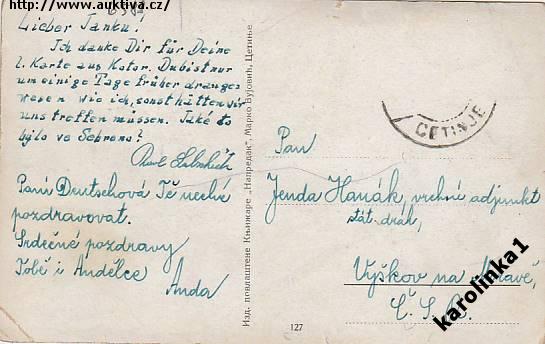 https://www.auktiva.cz/
Lieber Janku!
Ich danke Dir für Deine
l. Karte aus Kotor. Du bist nur
um einige Tage früher dranges
wesen wie ich, sonst hätten wir
uns treffen müssen. Jaké to
bylo ve
Paní Deutschová Tě nechá
pozdravovat.
Srdečné pozdravy
Tobě i Andělce
Anda
Изд. повлаштене Књижаре „Напредак“, Марко Вујовић, Цетиње
127
CETINJE
Pan
Jenda Hanák, vrchní adjunkt
stát. drah,
Vyškov na Moravě,
Č. S. R.
karolinka1